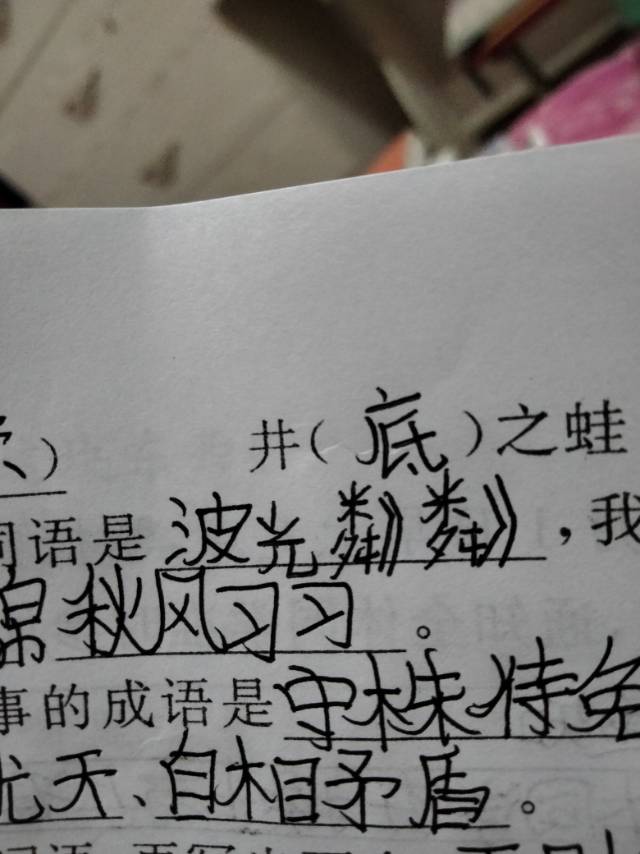 井(底)之蛙
词语是波光粼粼,我
秋风习习。
事的成语是守株待兔
忧天、自相矛盾。